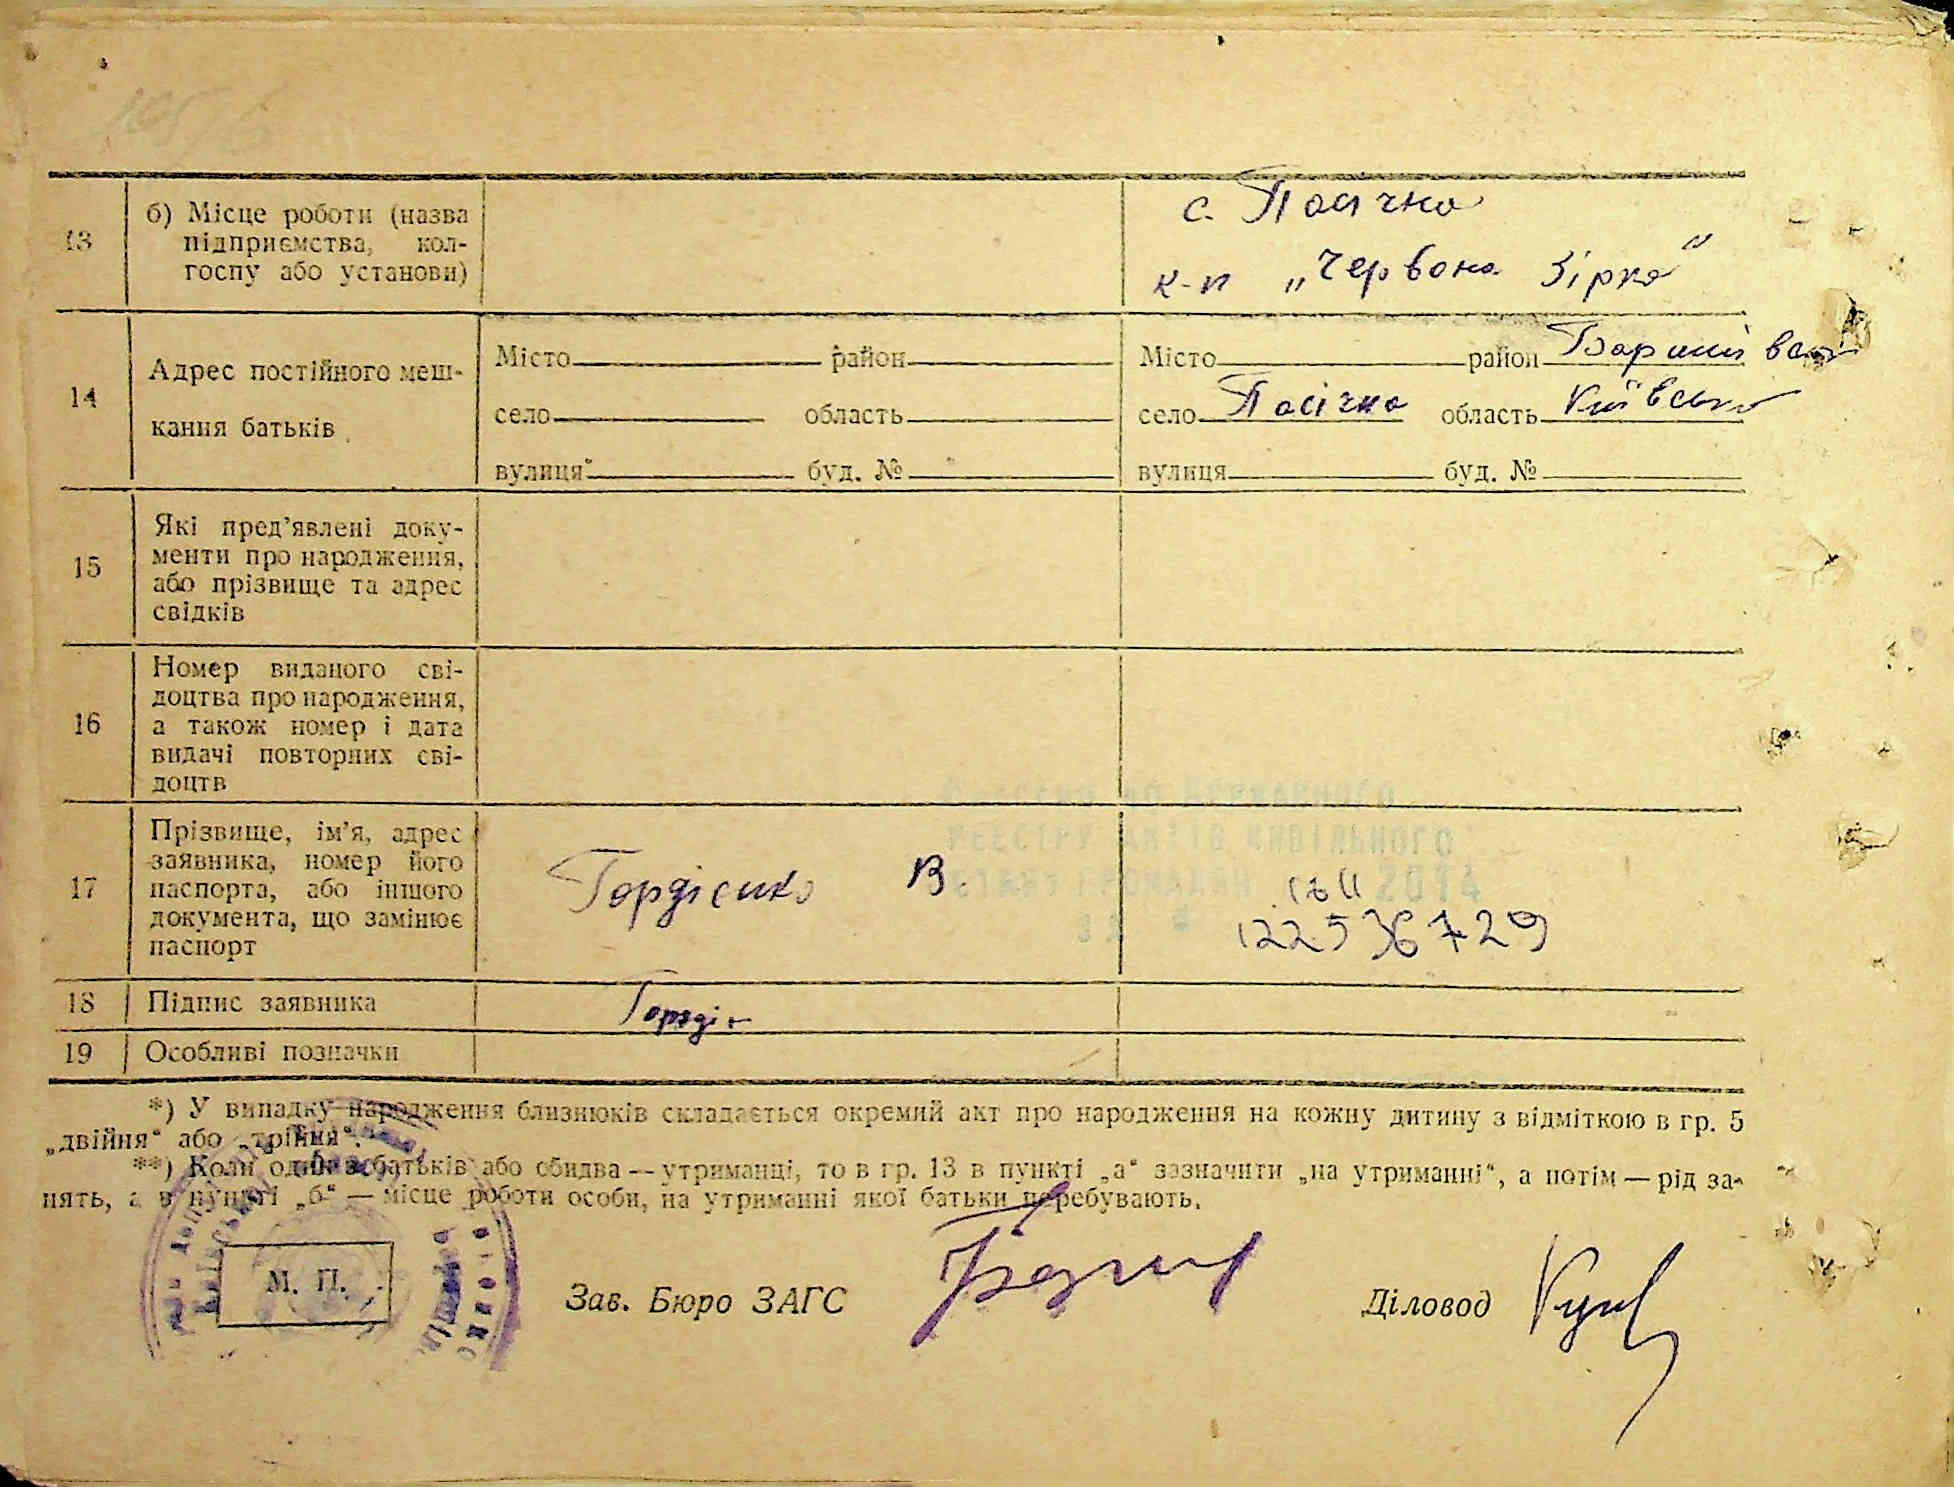 13
б) Місце роботи (назва
підприємства, кол-
госпу або установи)
с. Пасічна
к-п „Червона Зірка"
14
Адрес постійного меш-
кання батьків
Місто район
село область
вулиця буд. №
Місто район
село Пасічна область Київська
вулиця буд. №
15
Які пред'явлені доку-
менти про народження,
або прізвище та адрес
свідків
16
Номер виданого сві-
доцтва про народження,
а також номер і дата
видачі повторних сві-
доцтв
17
Прізвище, ім'я, адрес
заявника, номер його
паспорта, або іншого
документа, що замінює
паспорт
Гордієнко В.
державного
реєстру актів цивільного
2014
122536729
18 Підпис заявника
19 Особливі позначки
*) У випадку народження близнюків складається окремий акт про народження на кожну дитину з відміткою в гр. 5
„двійня“ або „трійня“.
**) Коли один з батьків або обидва — утриманці, то в гр. 13 в пункті „а“ зазначити „на утриманні“, а потім — рід за-
нять, а в пункті „б“ — місце роботи особи, на утриманні якої батьки перебувають.
М. П.
Зав. Бюро ЗАГС
Діловод